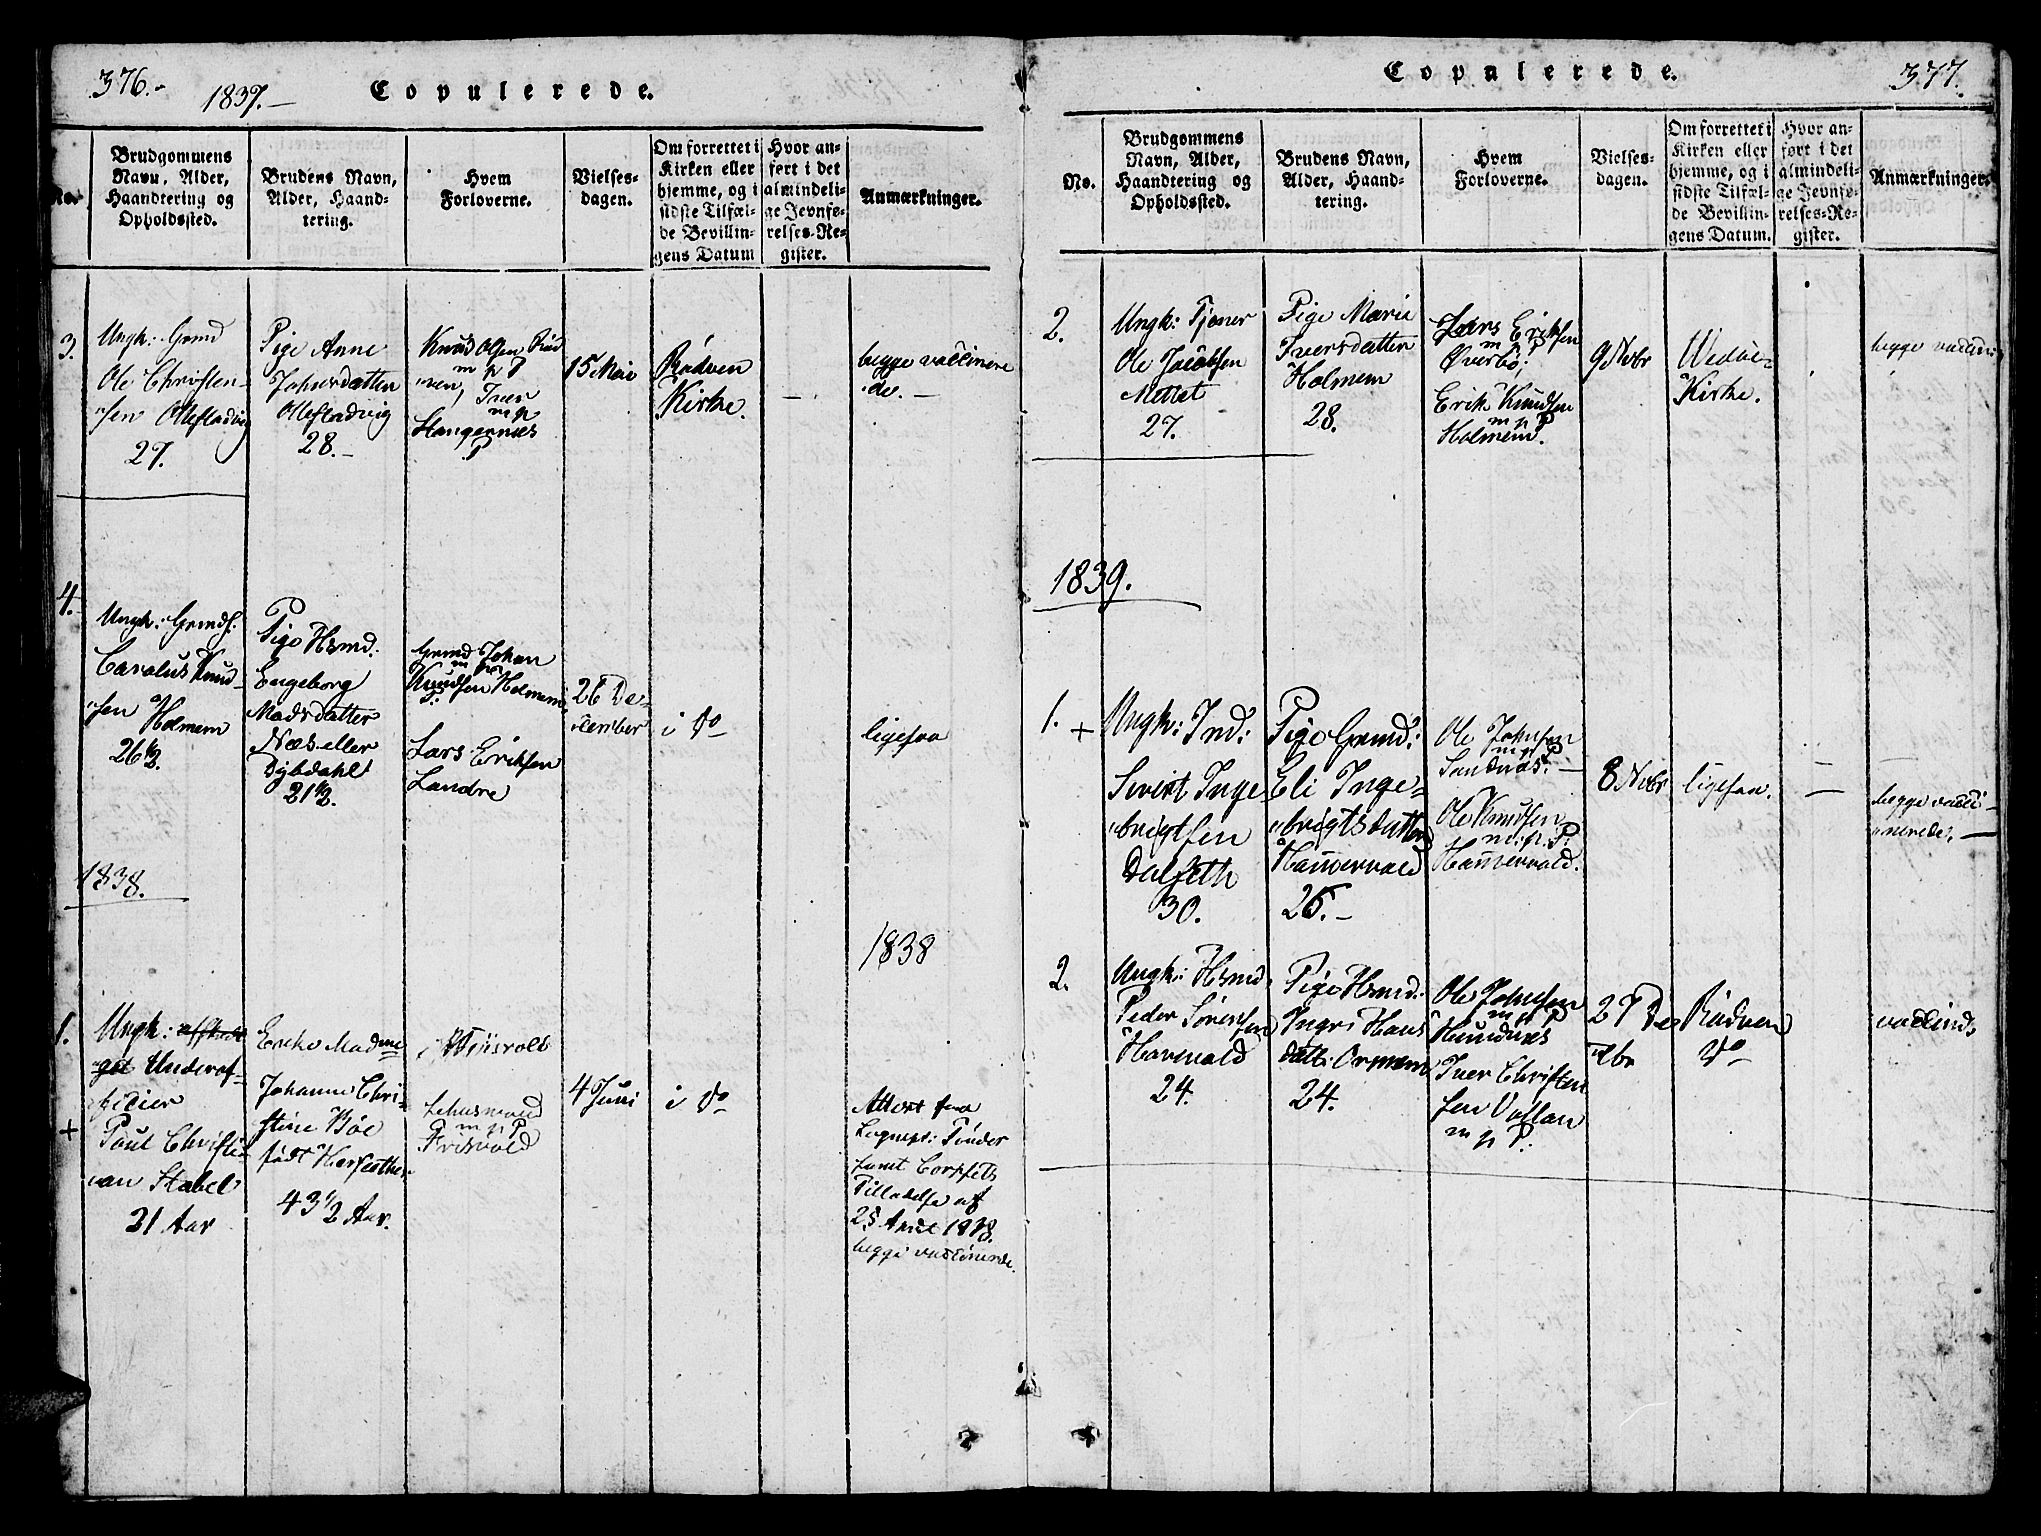 376.-
1837.-
Copulerede.
No.
Brudgommens
Navn, Alder,
Haandtering og
Opholdssted.
Brudens Navn,
Alder, Haand-
tering.
Hvem
Forloverne.
Vielses-
dagen.
Om forrettet i
Kirken eller
hjemme, og i
sidste Tilfæl-
de Bevillin-
gens Datum
Hvor an-
ført i det
almindeli-
ge Jevnfø-
relses-Re-
gister.
Anmærkninger.
3.
Ungk: Grmd
Ole Christen-
sen Ollestadvig
27.
Pige Anne
Johnsdatter
Ollestadvig
28.-
Knud Olsen Rød
m p P
ven, Iver
m p
Hangernæs
P
15 Mai
Rødven
Kirke.
begge vaccinere
de.-
4.
Ungk: Grmds.
Carolus Knud-
sen Holmem
26½.
Pige Hsmd:
Engeborg
Madsdatter
Næs eller
Dybdahl
21½.
Grmd Johan
m p
Knudsen Holmem
P:
Lars Eriksen
Landre
26 De-
cember
i do
ligesaa
1838.
1838
1.
+
Ungk: 
get Underof-
ficier
Paul Christi-
an Stabel
21 Aar
Enke Madme
Johanne Chri-
stine Bøe
født 
43½ Aar.
Lehnsmand
m p P
Frisvold
4 Juni
i do
Attest fra
samt Corpsets
Tilladelse af
25 April 1838.
begge vaccinerede.
Copulerede.
377.
No.
Brudgommens
Navn, Alder,
Haandtering og
Opholdssted.
Brudens Navn,
Alder, Haand-
tering.
Hvem
Forloverne.
Vielses-
dagen.
Om forrettet i
Kirken eller
hjemme, og i
sidste Tilfæl-
de Bevillin-
gens Datum.
Hvor an-
ført i det
almindeli-
ge Jevnfø-
relses-Re-
gister.
Anmærkninger.
2.
Ungk: Tjener
Ole Jacobsen
Mittet
27.
Pige Marie
Iversdatter
Holmem
28.
Lars Eriksen
m p P
Øverbø,
Erik Knudsen
m p P
Holmem.
9 Novbr
Wedøe-
Kirke.
begge vaccin:
1839.
1.
+
Ungk: Ind:
Sivert Inge-
brigtsen
Dalseth
30.
Pige Grmd:
Eli Inge-
brigtsdatter
Hammervold
25.-
Ole Johnsen
m p P
Sandnæs.-
Ole Knudsen
m. p. P.
Hammervold.
8 Novbr
ligesaa.
-
begge vacci-
nerede.-
2.
Ungk: Hsmd.
Peder Sørensen
24.
Pige Hsmd:
Ingri Hans
datt: Ormem
24.
Ole Johnsen
m p P
Hundnæs
Iver Christen
sen Vollan
m p P.
27 De
cbr
Rødven
do
vaccinde